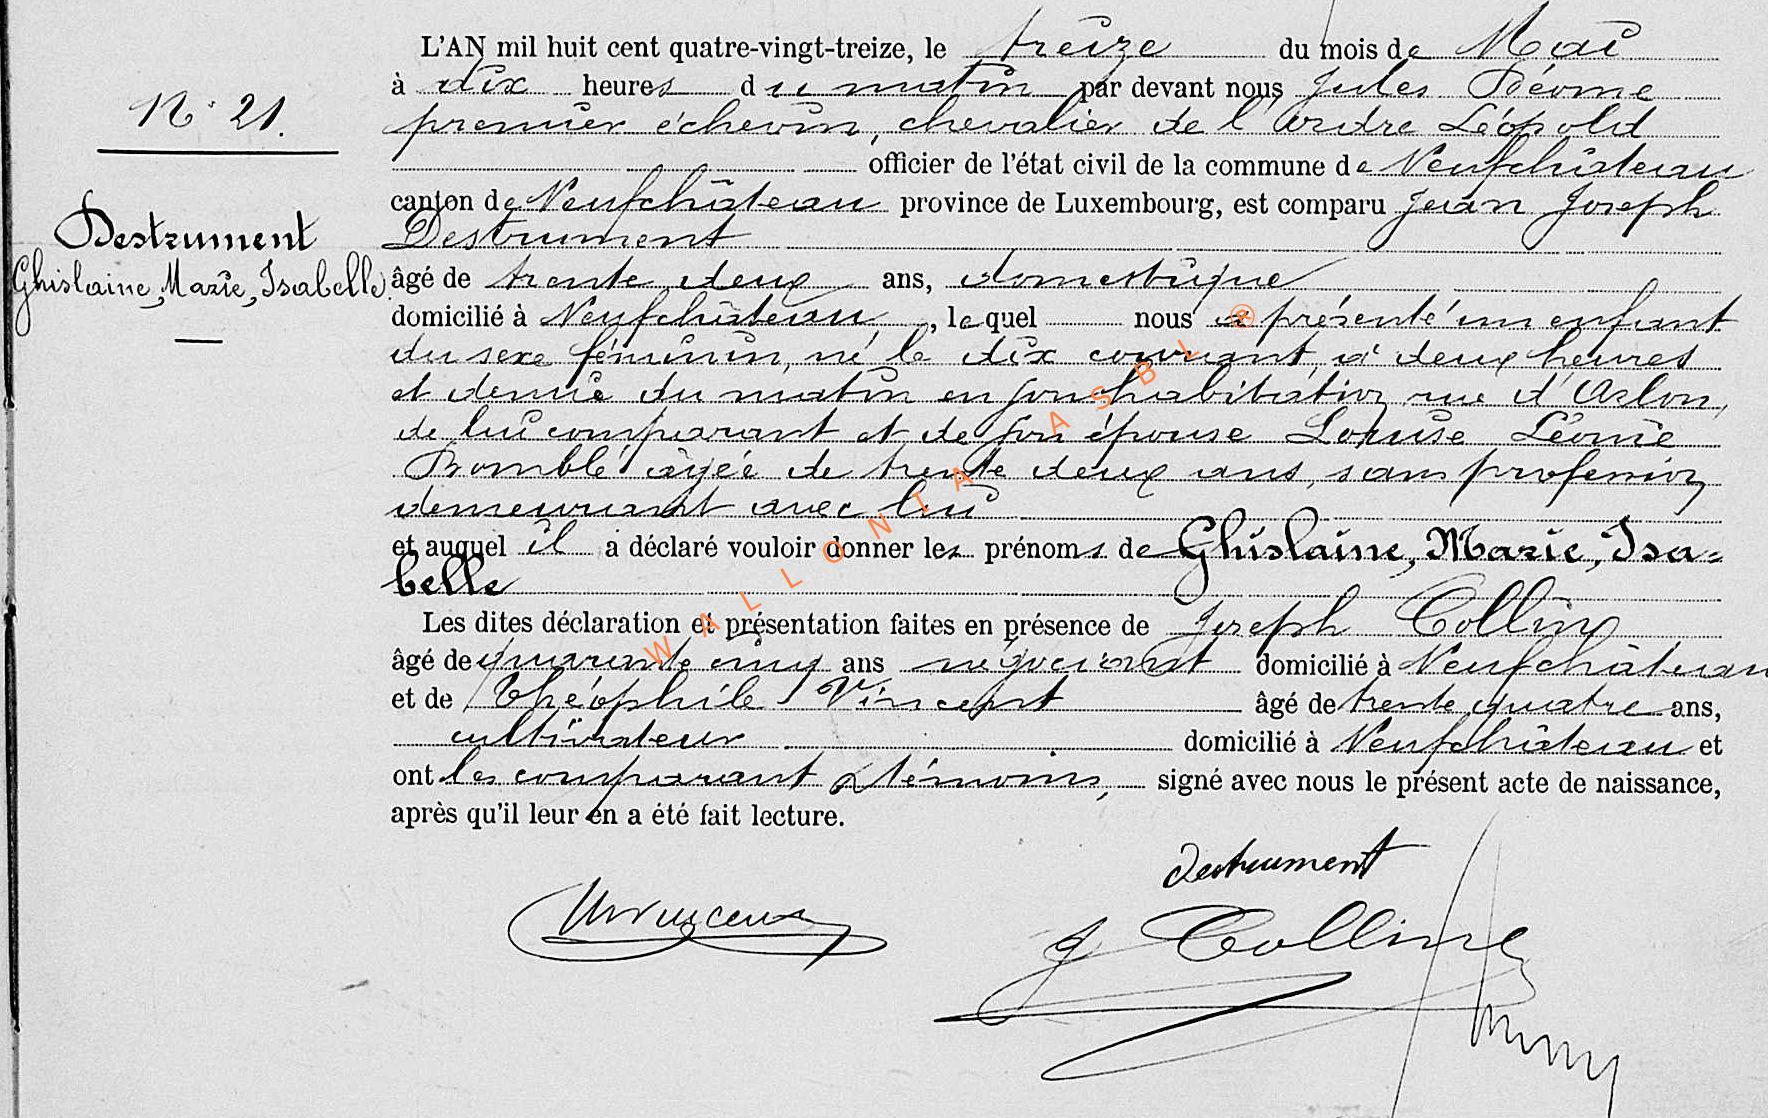 L'AN mil huit cent quatre-vingt-treize, le treize du mois de Mai
à dix heures du matin par devant nous Jules
N° 21.
premier échevin, chevalier de l'ordre Léopold
officier de l'état civil de la commune de Neufchâteau
canton de Neufchâteau province de Luxembourg, est comparu Jean Joseph
Destrument
Destrument
Ghislaine, Marie, Isabelle.
âgé de trente deux ans, domestique
domicilié à Neufchâteau, lequel nous a présenté un enfant
du sexe féminin, né le dix courant, à deux heures
et demie du matin en son habitation rue d'Arlon,
de lui comparant et de son épouse Louise Léonie
Bomblé âgée de trente deux ans, sans profession
demeurant avec lui
et auquel il a déclaré vouloir donner les prénoms de Ghislaine, Marie, Isa-
belle
Les dites déclaration et présentation faites en présence de Joseph Collin
âgé de quarante cinq ans négociant domicilié à Neufchâteau
et de Théophile Vincent âgé de trente quatre ans,
cultivateur domicilié à Neufchâteau et
ont les comparant & témoins, signé avec nous le présent acte de naissance,
après qu'il leur en a été fait lecture.
Destrument
J Colline
WALLONIA ASBL ®